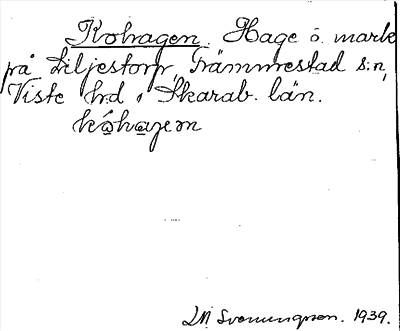 Kohagen. Hage o. mark
på Liljestorp, Främmestad s:n,
Viste hrd, Skarab. län.
kåhagem
LM Svenungsson. 1939.